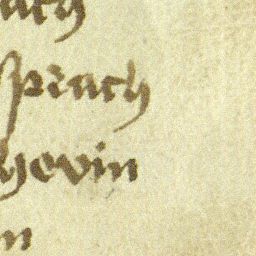 ach
sprach
hevin
n